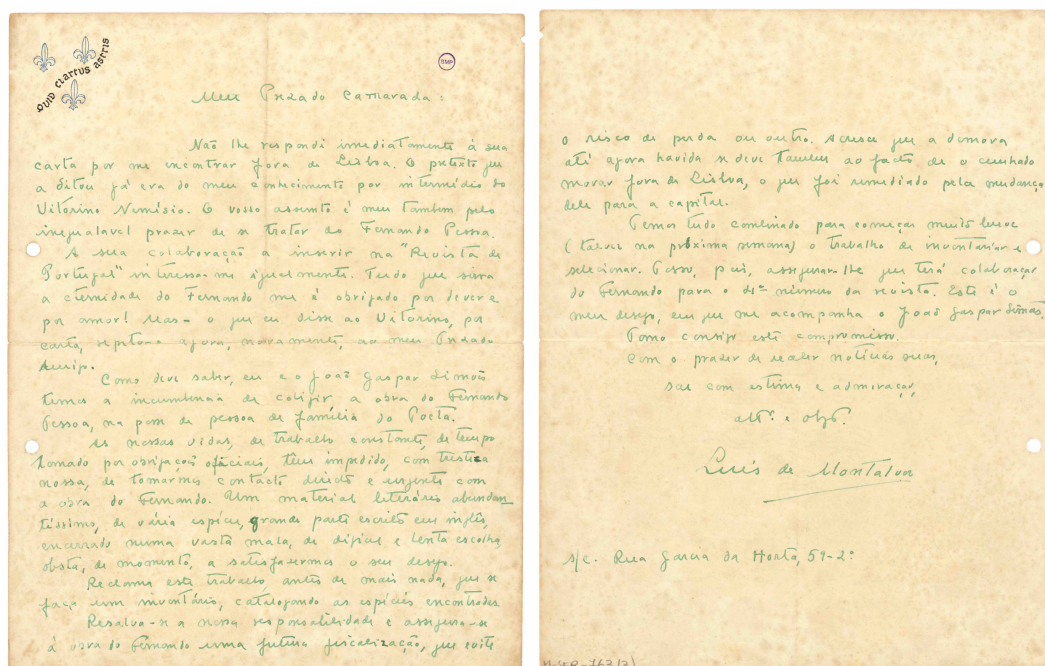 QUID CLARIUS ASTRIS
Meu Prezado Camarada:
Não lhe respondi imediatamente à sua
carta por me encontrar fora de Lisboa. O pretexto que
a ditou já era do meu conhecimento por intermédio do
Vitorino Nemésio. O vosso assunto é meu tambem pelo
inegualavel prazer de se tratar do Fernando Pessoa.
A sua colaboração a inserir na "Revista de
Portugal" interessa-me igualmente. Tudo que sirva
a eternidade do Fernando me é obrigado por dever e
por amor! Mas - o que eu disse ao Vitorino, por
carta, repito-o agora, novamente, ao meu Prezado
Amigo.
Como deve saber, eu e o João Gaspar Simões
temos a incumbencia de coligir a obra do Fernando
Pessoa, na posse de pessoa de família do Poeta.
As nossas vidas, de trabalho constante, de tempo
tomado por obrigações oficiais, têm impedido, com tristeza
nossa, de tomarmos contacto directo e urgente com
a obra do Fernando. Um material literário abundan-
tíssimo, de vária espécie, grande parte escrito em inglês,
encerrado numa vasta mala, de dificil e lenta escolha,
obsta, de momento, a satisfazermos o seu desejo.
Reclama este trabalho antes de mais nada, que se
faça um inventário, catalogando as espécies encontradas.
Resalva-se a nossa responsabilidade e assegura-se
à obra do Fernando uma futura fiscalização, que evite
o risco de perda ou outro. Acresce que a demora
até agora havida se deve tambem ao facto de o cunhado
morar fora de Lisboa, o que foi remediado pela mudança
dele para a capital.
Temos tudo combinado para começar muito breve
(talvez na próxima semana) o trabalho de inventariar e
selecionar. Posso, pois, assegurar-lhe que terá colaboração
do Fernando para o número da revista. Este é o
meu desejo, em que me acompanha o João Gaspar Simões.
Tomo consigo este compromisso.
Com o prazer de receber notícias suas,
sou com estima e admiração,
att.º e obgº.
Luís de Montalvor
s/c. Rua Garcia da Horta, 59-2º